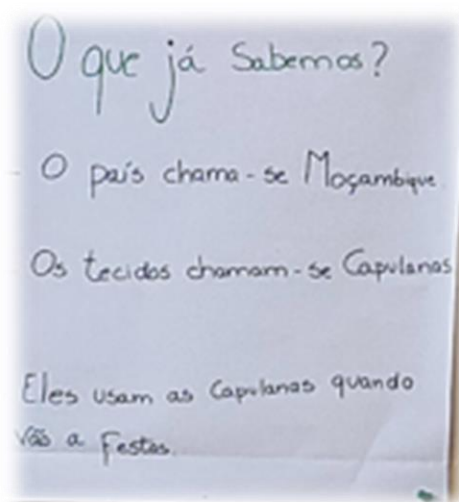 O que já Sabemos?
O país chama-se Moçambique.
Os tecidos chamam-se Capulanas
Eles usam as Capulanas quando
vão a Festas.